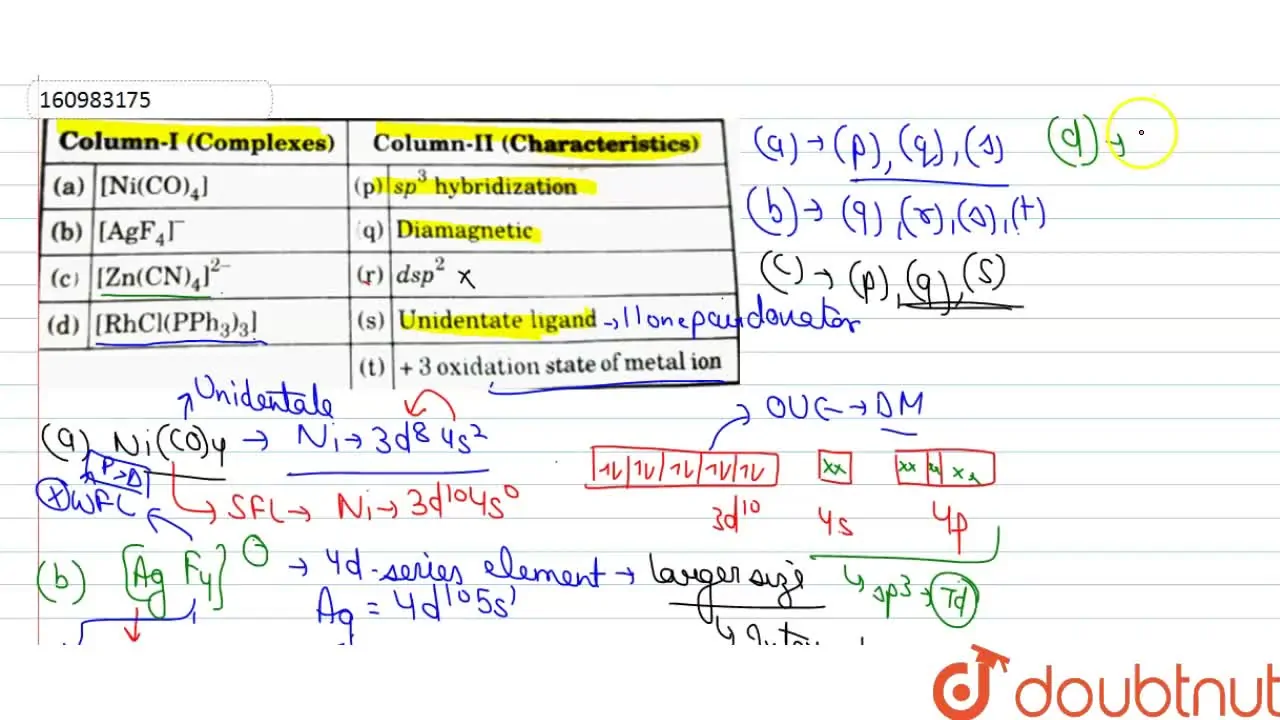 160983175
Column-I (Complexes) Column-II (Characteristics)
(a) [Ni(CO)₄] (p) sp³ hybridization
(b) [AgF₄]⁻ (q) Diamagnetic
(c) [Zn(CN)₄]²⁻ (r) dsp² x
(d) [RhCl(PPh₃)₃] (s) Unidentate ligand → 1 lone pair donator
(t) +3 oxidation state of metal ion
(a) → (p), (q), (s)
(d) →
(b) → (q), (r), (s), (t)
(c) → (p), (q), (s)
Unidentate
(a) Ni(CO)4 → Ni → 3d⁸ 4s²
P > Δ
WFL
SFL → Ni → 3d¹⁰4s⁰
OUE → DM
3d¹⁰ 4s 4p
sp3 → Td
(b) [Ag F4]⊖ → 4d-series element → larger size
Ag = 4d¹⁰5s¹
doubtnut